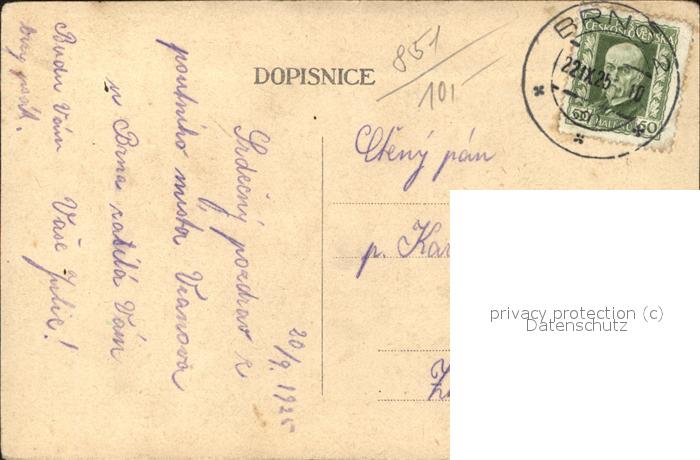 DOPISNICE
851
101
BRNO 2
22.IX.25
ČESKOSLOVENSKÁ
60 HALÉŘŮ 60
Ctěný pán
p.
20/9. 1925
Srdečný pozdrav z
poutního místa Vranova
u Brna zasílá Vám
Vaše Julie!
Budu Vám
brzy psát.
privacy protection (c)
Datenschutz